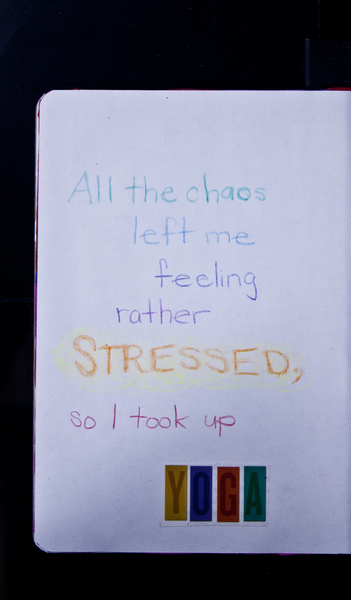 All the chaos
left me
feeling
rather
STRESSED,
so I took up
YOGA